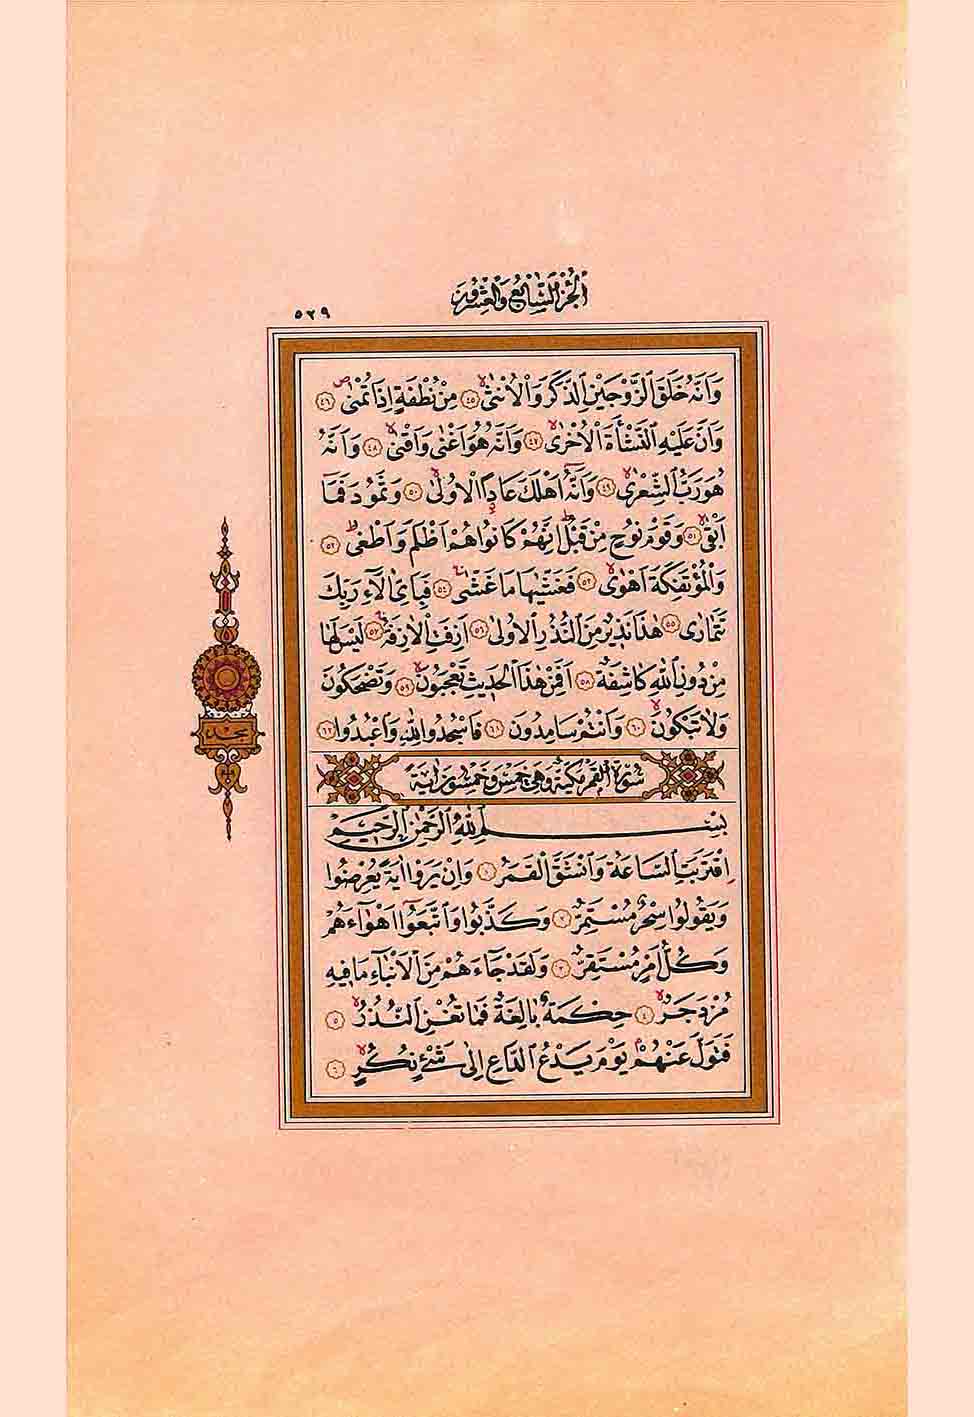 الجزء السابع والعشرون
٥٢٩
وَاَنَّهُ خَلَقَ الزَّوْجَيْنِ الذَّكَرَ وَالْاُنْثٰىۙ ﴿٤٥﴾ مِنْ نُطْفَةٍ اِذَا تُمْنٰىۖ ﴿٤٦﴾
وَاَنَّ عَلَيْهِ النَّشْاَةَ الْاُخْرٰىۙ ﴿٤٧﴾ وَاَنَّهُ هُوَ اَغْنٰى وَاَقْنٰىۙ ﴿٤٨﴾ وَاَنَّهُ
هُوَ رَبُّ الشِّعْرٰىۙ ﴿٤٩﴾ وَاَنَّهُٓ اَهْلَكَ عَادًاۨ الْاُولٰىۙ ﴿٥٠﴾ وَثَمُودَ فَمَٓا
اَبْقٰىۙ ﴿٥١﴾ وَقَوْمَ نُوحٍ مِنْ قَبْلُۜ اِنَّهُمْ كَانُوا هُمْ اَظْلَمَ وَاَطْغٰىۜ ﴿٥٢﴾
وَالْمُؤْتَفِكَةَ اَهْوٰىۙ ﴿٥٣﴾ فَغَشّٰيهَا مَا غَشّٰىۚ ﴿٥٤﴾ فَبِاَيِّ اٰلَٓاءِ رَبِّكَ
تَتَمَارٰى ﴿٥٥﴾ هٰذَا نَذِيرٌ مِنَ النُّذُرِ الْاُولٰى ﴿٥٦﴾ اَزِفَتِ الْاٰزِفَةُۚ ﴿٥٧﴾ لَيْسَ لَهَا
مِنْ دُونِ اللّٰهِ كَاشِفَةٌۜ ﴿٥٨﴾ اَفَمِنْ هٰذَا الْحَدِيثِ تَعْجَبُونَۙ ﴿٥٩﴾ وَتَضْحَكُونَ
وَلَا تَبْكُونَۙ ﴿٦٠﴾ وَاَنْتُمْ سَامِدُونَ ﴿٦١﴾ فَاسْجُدُوا لِلّٰهِ وَاعْبُدُوا ﴿٦٢﴾
سجده
سُورَةُ الْقَمَرِ مَكِّيَّةٌ وَهِيَ خَمْسٌ وَخَمْسُونَ اٰيَةً
بِسْمِ اللّٰهِ الرَّحْمٰنِ الرَّحِيمِ
اِقْتَرَبَتِ السَّاعَةُ وَانْشَقَّ الْقَمَرُ ﴿١﴾ وَاِنْ يَرَوْا اٰيَةً يُعْرِضُوا
وَيَقُولُوا سِحْرٌ مُسْتَمِرٌّ ﴿٢﴾ وَكَذَّبُوا وَاتَّبَعُٓوا اَهْوَٓاءَهُمْ
وَكُلُّ اَمْرٍ مُسْتَقِرٌّ ﴿٣﴾ وَلَقَدْ جَٓاءَهُمْ مِنَ الْاَنْبَٓاءِ مَا فِيهِ
مُزْدَجَرٌۙ ﴿٤﴾ حِكْمَةٌ بَالِغَةٌ فَمَا تُغْنِ النُّذُرُۙ ﴿٥﴾
فَتَوَلَّ عَنْهُمْۢ يَوْمَ يَدْعُ الدَّاعِ اِلٰى شَيْءٍ نُكُرٍۙ ﴿٦﴾